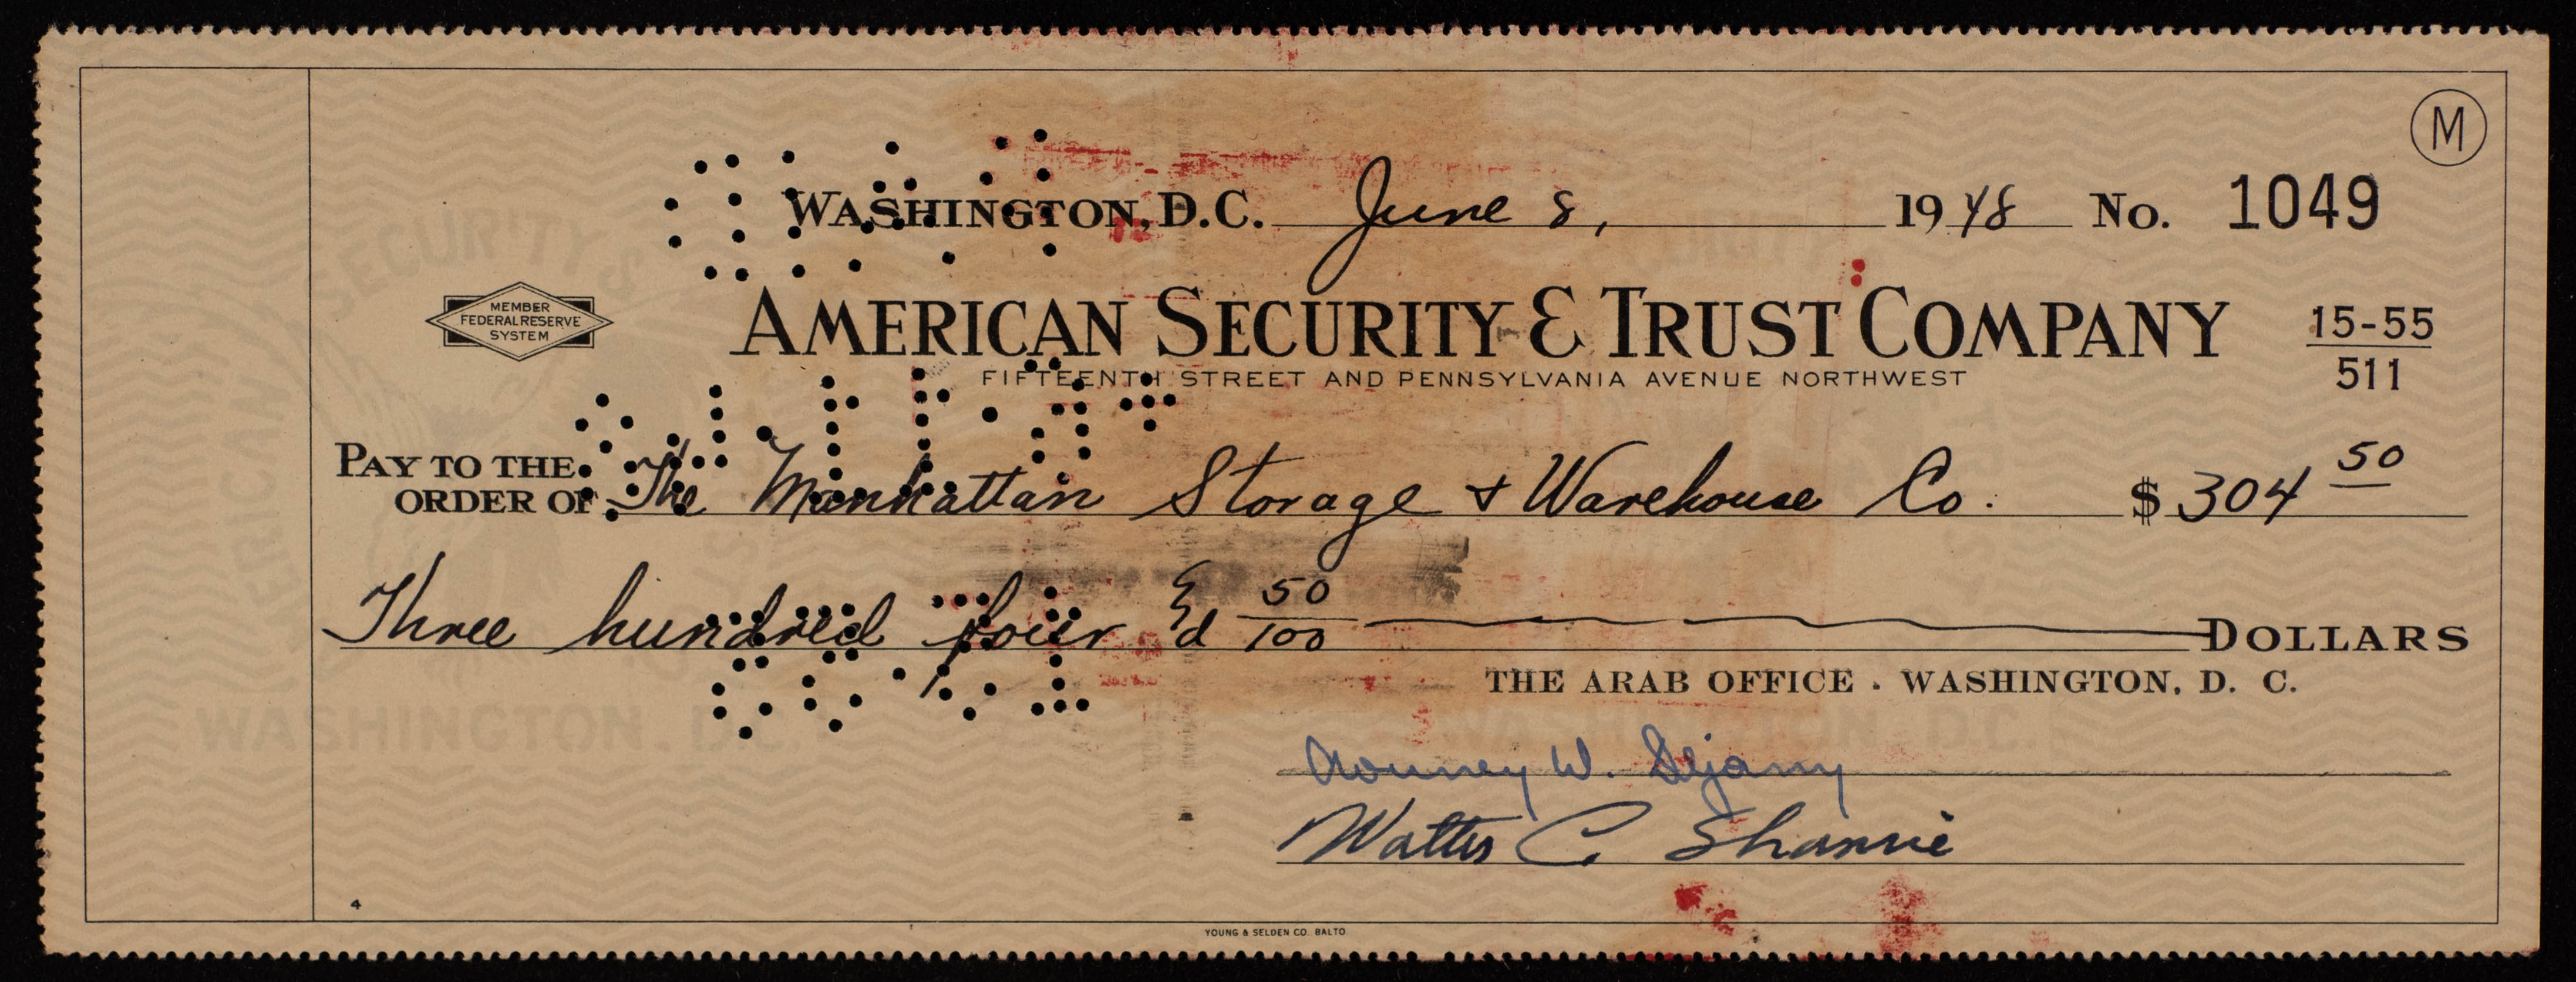 M
WASHINGTON, D.C. June 8, 1948 No. 1049
MEMBER
FEDERAL RESERVE
SYSTEM
AMERICAN SECURITY & TRUST COMPANY
15-55
511
FIFTEENTH STREET AND PENNSYLVANIA AVENUE NORTHWEST
PAY TO THE
ORDER OF The Manhattan Storage & Warehouse Co. $ 304 50
Three hundred four & 50/100 DOLLARS
THE ARAB OFFICE . WASHINGTON, D. C.
W.
Walter C
4
YOUNG & SELDEN CO. BALTO.